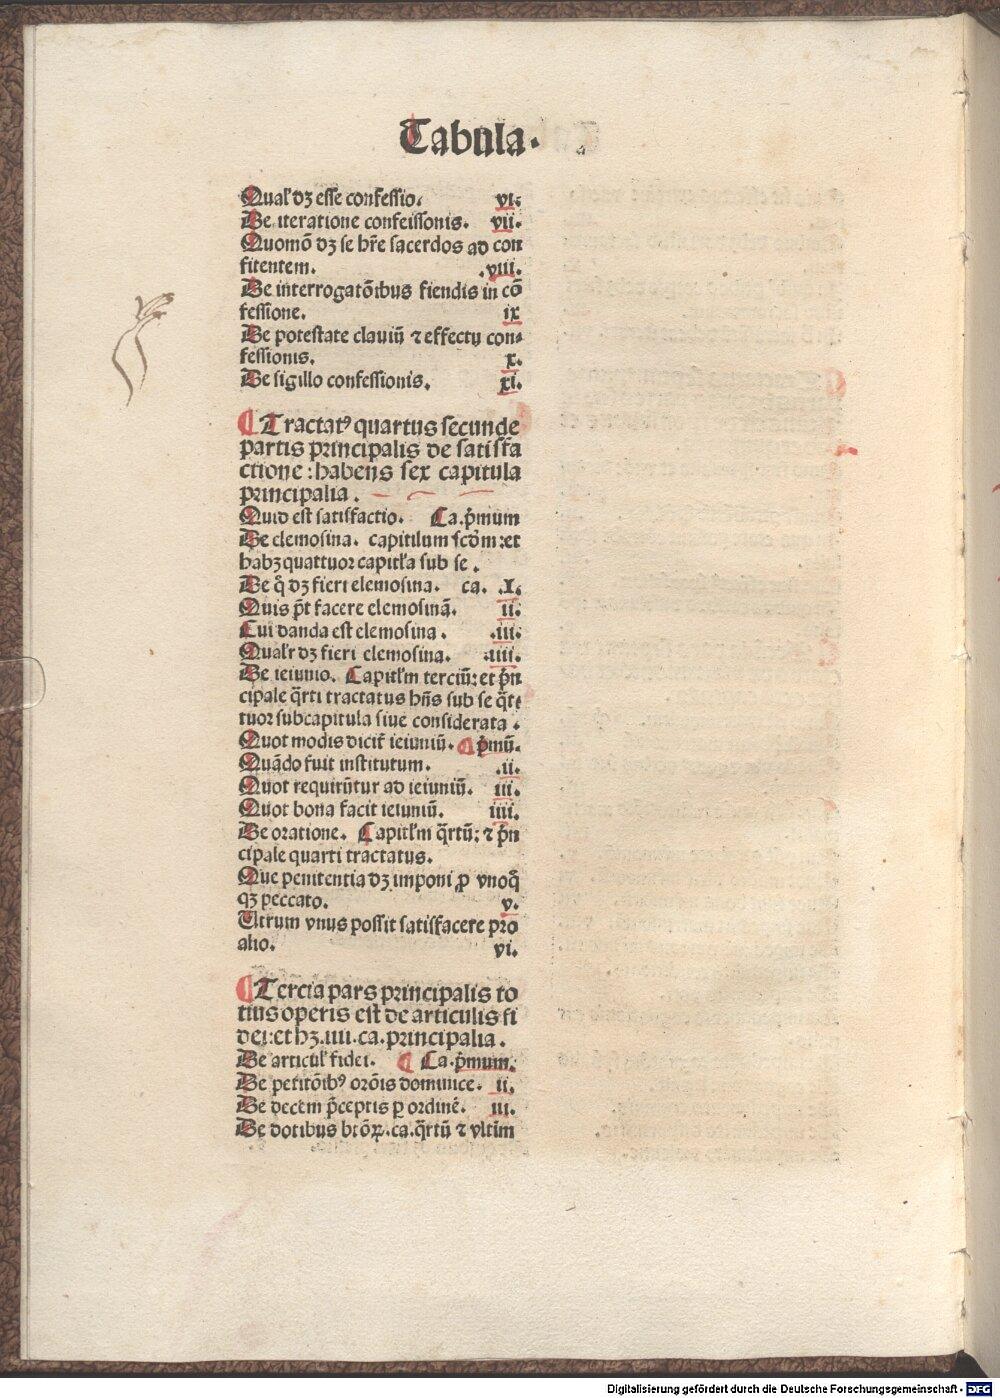 Tabula.
Qual' dʒ esse confessio. vi.
De iteratione confeissonis. vii.
Quomō dʒ se hr̄e sacerdos ad con
fitentem. .viii.
De interrogatōibus fiendis in cō
fessione. ix
De potestate clauiū ⁊ effectu con-
fessionis. x.
De sigillo confessionis. xi.
¶ Tractatꝰ quartus secunde
partis principalis de satisfa
ctione : habens sex capitula
principalia .
Quid est satisfactio. Ca.p̄mum
De elemosina. capitulum scd̄m:et
habʒ quattuor capitl'a sub se .
De q̄ dʒ fieri elemosina. ca. .I.
Quis p̄t facere elemosinā. ii.
Cui danda est elemosina . .iii.
Qual'r dʒ fieri elemosina. .iiii.
De ieiunio. Capitl'm terciū: et p̄n
cipale q̄rti tractatus hn̄s sub se q̄t
tuor subcapitula siue considerata .
Quot modis dicit̄ ieiuniū. ¶ p̄mū.
Quādo fuit institutum. .ii.
Quot requirūtur ad ieiuniū. iii.
Quot bona facit ieiuniū. iiii.
De oratione. Capitl'm q̄rtū: ⁊ p̄n
cipale quarti tractatus.
Que penitentia dʒ imponi ꝓ vnoq̄
qʒ peccato. v.
Utrum vnus possit satisfacere pro
alio. vi.
¶ Tercia pars principalis to
tius operis est de articulis fi
dei: et hʒ .iiii. ca. principalia .
De articul' fidei. ¶ Ca.p̄mum.
De petitōibꝰ orōis dominice. ii.
De decem p̄ceptis ꝑ ordinē. iii.
De dotibus btōꝝ. ca. q̄rtū ⁊ vltim
Digitalisierung gefördert durch die Deutsche Forschungsgemeinschaft - DFG